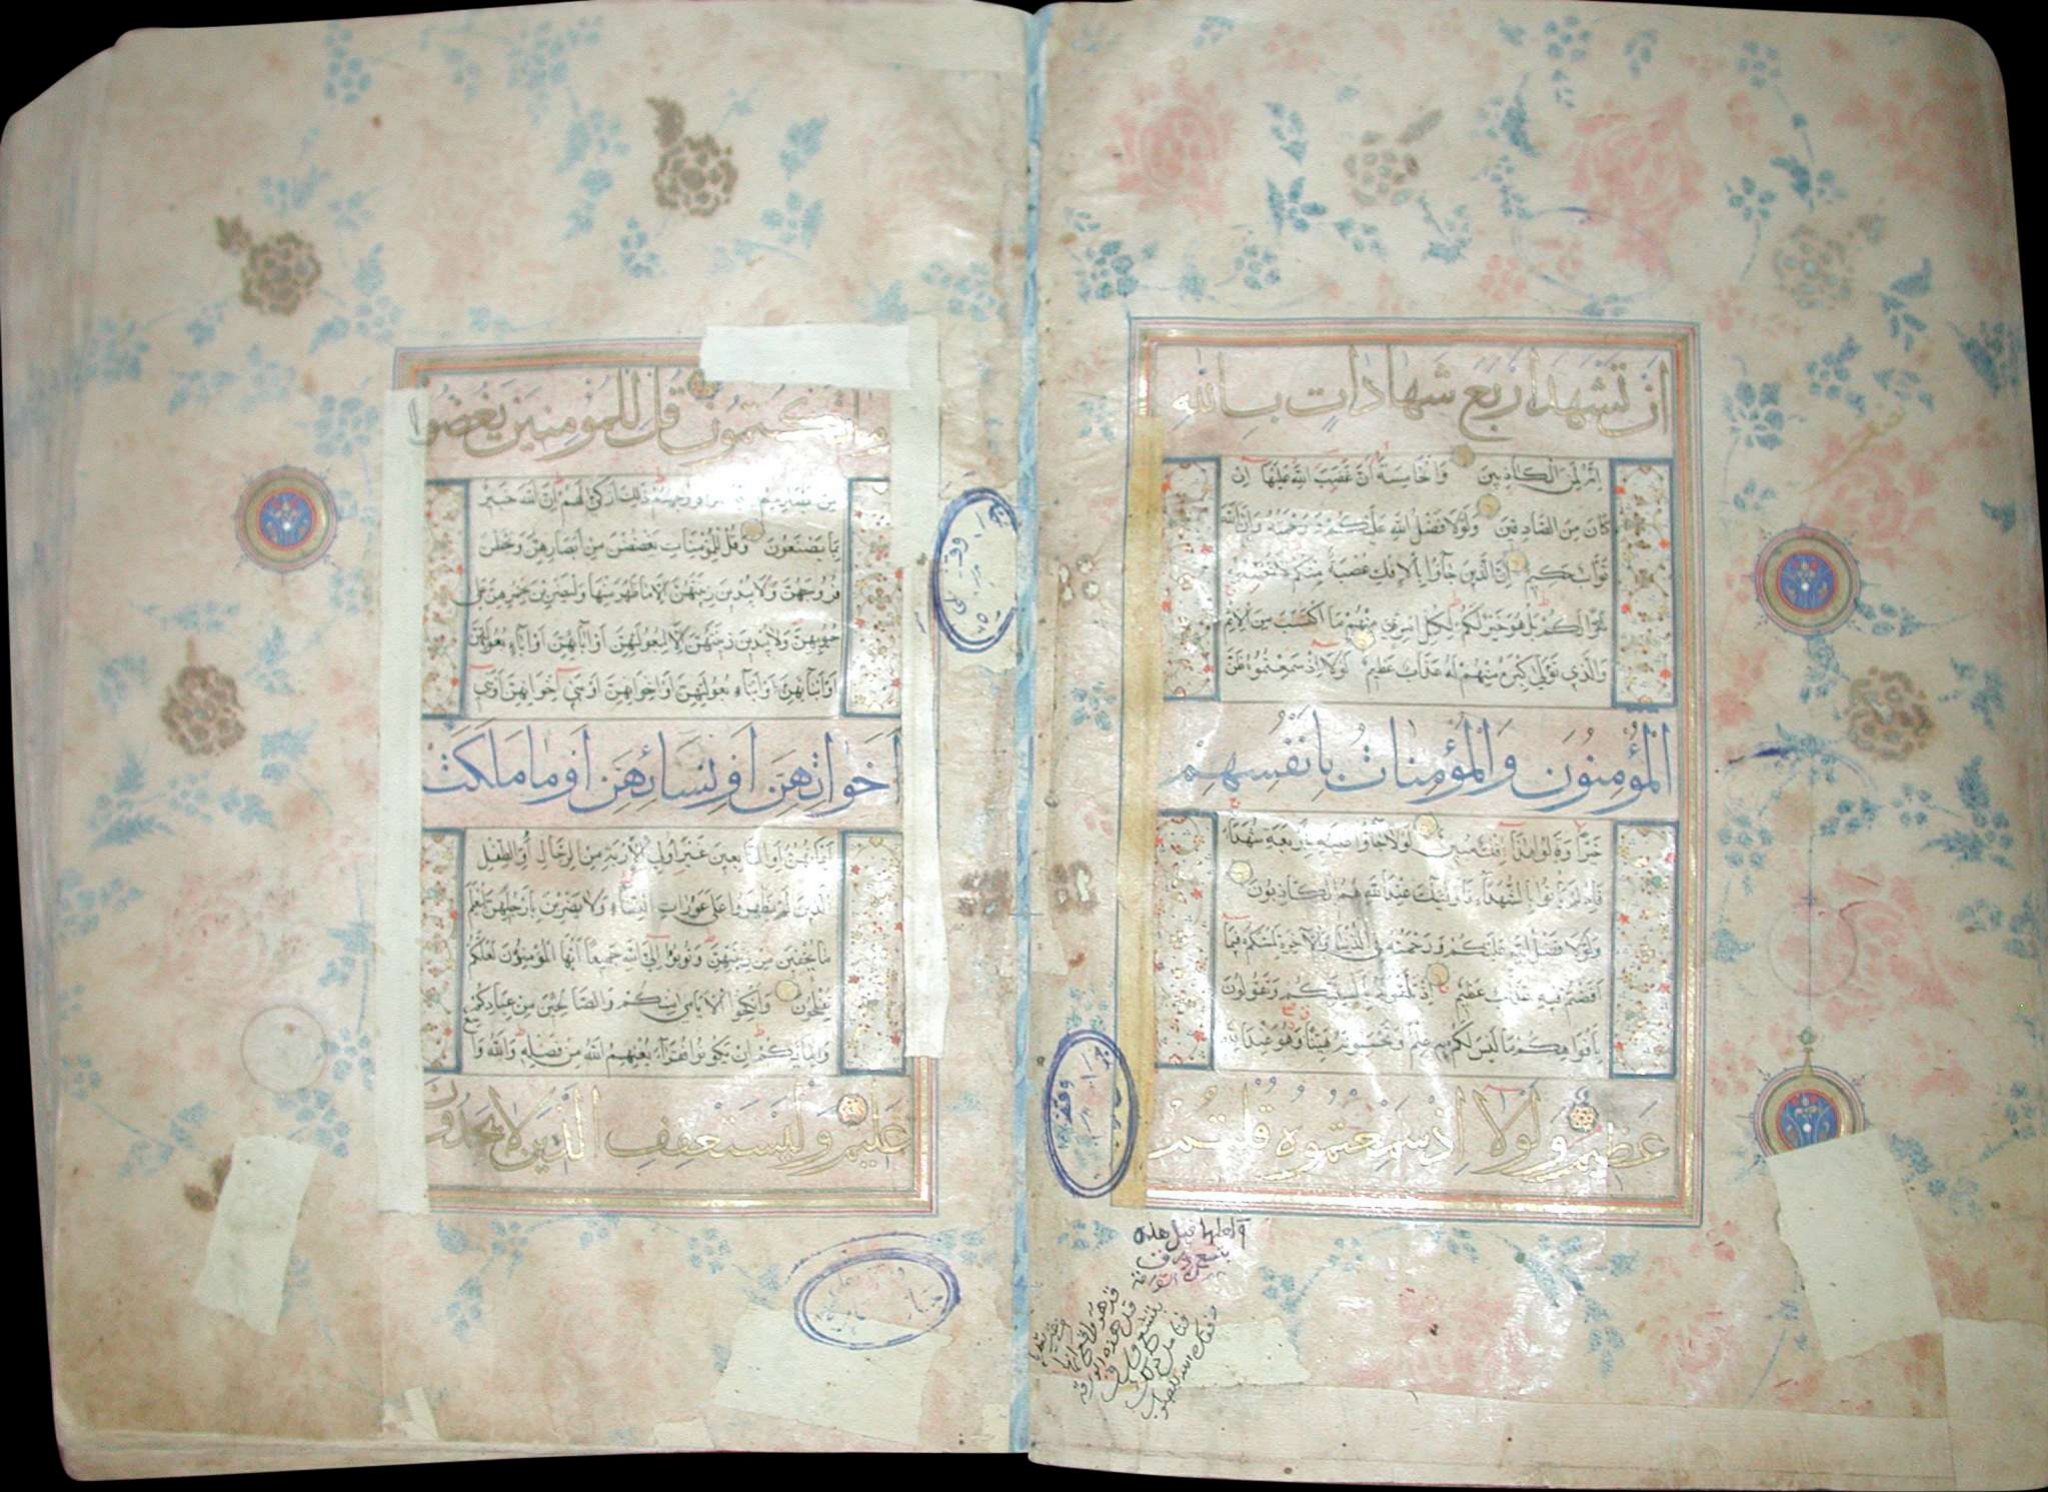 ان تشهد اربع شهادات بالله
انه لمن الكاذبين والخامسة أن غضب الله عليها إن
كان من الصادقين ولولا فضل الله عليكم ورحمته وأن الله
تواب حكيم إن الذين جاؤا بالإفك عصبة منكم لا تحسبوه
شرا لكم بل هو خير لكم لكل امرئ منهم ما اكتسب من الإثم
والذي تولى كبره منهم له عذاب عظيم لولا إذ سمعتموه ظن
المؤمنون والمؤمنات بانفسهم
خيرا وقالوا هذا إفك مبين لولا جاؤا عليه بأربعة شهداء
فإذ لم يأتوا بالشهداء فأولئك عند الله هم الكاذبون
ولولا فضل الله عليكم ورحمته في الدنيا والآخرة لمسكم فيما
أفضتم فيه عذاب عظيم إذ تلقونه بألسنتكم وتقولون
بأفواهكم ما ليس لكم به علم وتحسبونه هينا وهو عند الله
عظيم ولولا اذ سمعتموه قلتم
قبل هذه
ما تكتمون قل للمؤمنين يغضوا
من أبصارهم ويحفظوا فروجهم ذلك أزكى لهم إن الله خبير
بما يصنعون وقل للمؤمنات يغضضن من أبصارهن ويحفظن
فروجهن ولا يبدين زينتهن إلا ما ظهر منها وليضربن بخمرهن على
جيوبهن ولا يبدين زينتهن إلا لبعولتهن أو آبائهن أو آباء بعولتهن
أو أبنائهن أو أبناء بعولتهن أو إخوانهن أو بني إخوانهن أو بني
اخواتهن او نسائهن او ما ملكت
أيمانهن أو التابعين غير أولي الإربة من الرجال أو الطفل
الذين لم يظهروا على عورات النساء ولا يضربن بأرجلهن ليعلم
ما يخفين من زينتهن وتوبوا إلى الله جميعا أيها المؤمنون لعلكم
تفلحون وأنكحوا الأيامى منكم والصالحين من عبادكم
وإمائكم إن يكونوا فقراء يغنهم الله من فضله والله واسع
عليم وليستعفف الذين لا يجدون
وقف